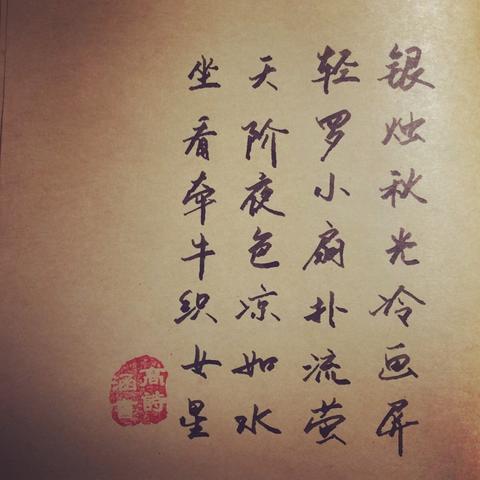 银烛秋光冷画屏
轻罗小扇扑流萤
天阶夜色凉如水
坐看牵牛织女星
高詩
涵書